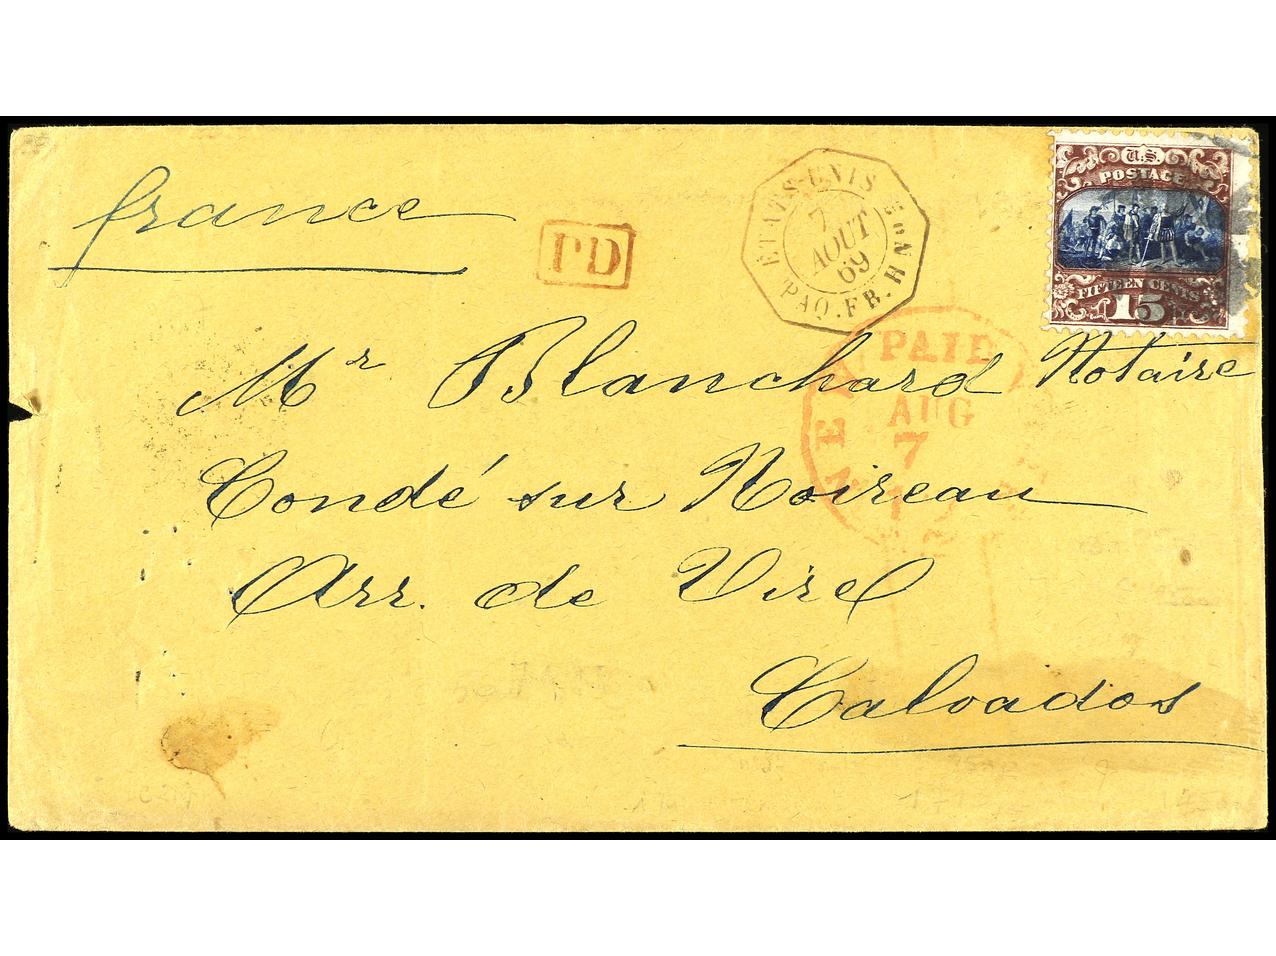 france
PD
ETATS-UNIS
7
AOUT
69
PAQ. FR. H No 3
U.S.
POSTAGE
FIFTEEN CENTS
15
PAID
AUG
7
Mr Blanchard Notaire
Condé sur Noireau
Arr. de Vire
Calvados